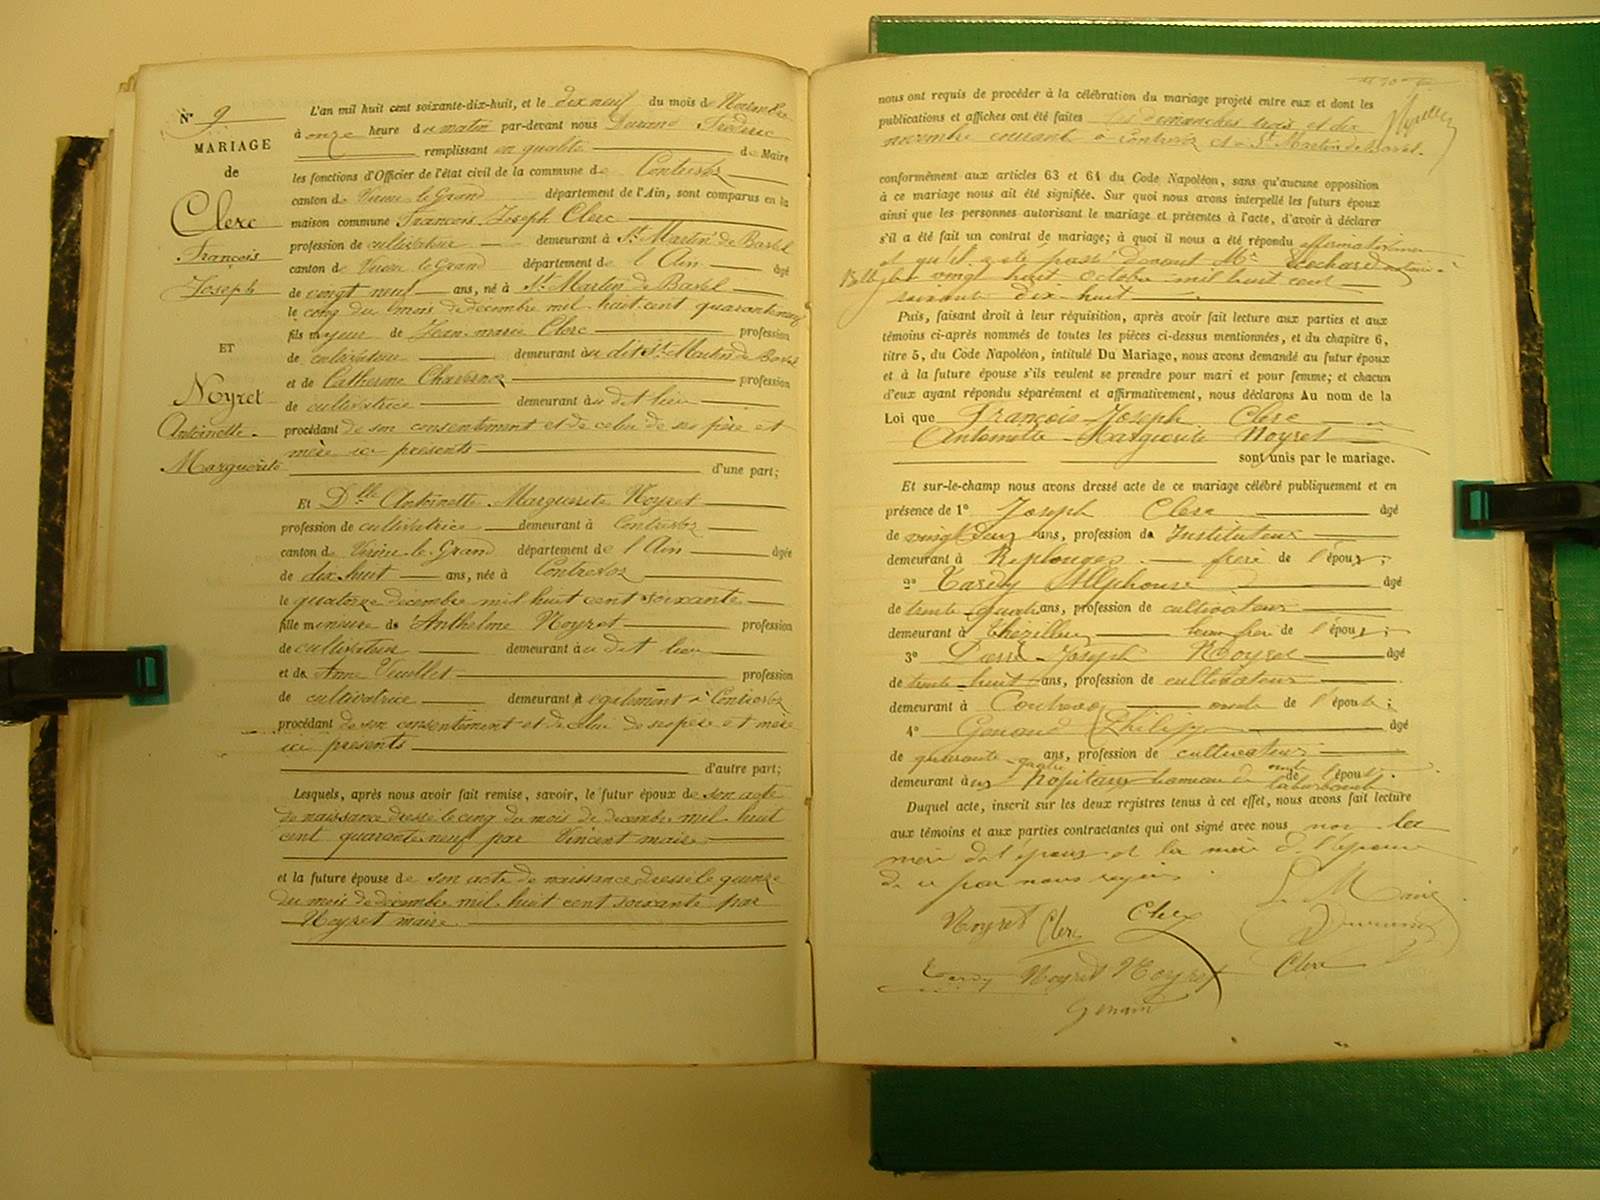 N° 9
MARIAGE
de
Clerc
François
Joseph
ET
Noyret
Antoinette
Marguerite
L'an mil huit cent soixante-dix-huit, et le dix neuf du mois de Novembre
à onze heure du matin par-devant nous Durand Fréderic
remplissant en qualité de Maire
les fonctions d'Officier de l'état civil de la commune de Contrevoz
canton de Virieu le Grand département de l'Ain, sont comparus en la
maison commune François Joseph Clerc
profession de cultivateur demeurant à St Martin de Bavel
canton de Virieu le Grand département de l'Ain âgé
de vingt neuf ans, né à St Martin de Bavel
le cinq du mois de décembre mil huit cent quarante neuf
fils majeur de Jean-marie Clerc profession
de cultivateur demeurant au dit St Martin de Bavel
et de Catherine Charvoz profession
de cultivatrice demeurant au dit lieu
procédant de son consentement et de celui de ses père et
mère ici présents
d'une part;
Et Dlle Antoinette Marguerite Noyret
profession de cultivatrice demeurant à Contrevoz
canton de Virieu-le-Grand département de l'Ain âgée
de dix huit ans, née à Contrevoz
le quatorze décembre mil huit cent soixante
fille mineure de Anthelme Noyret profession
de cultivateur demeurant au dit lieu
et de Anne Vuillet profession
de cultivatrice demeurant à également à Contrevoz
procédant de son consentement et de celui de ses père et mère
ici présents
d'autre part;
Lesquels, après nous avoir fait remise, savoir, le futur époux de son acte
de naissance dressé le cinq du mois de decembre mil huit
cent quarante neuf par Vincent maire
et la future épouse de son acte de naissance dressé le quinze
du mois de décembre mil huit cent soixante par
Noyret maire
nous ont requis de procéder à la célébration du mariage projeté entre eux et dont les
publications et affiches ont été faites les dimanches trois et dix
novembre courant à Contrevoz et à St Martin de Bavel.
conformément aux articles 63 et 64 du Code Napoléon, sans qu'aucune opposition
à ce mariage nous ait été signifiée. Sur quoi nous avons interpellé les futurs époux
ainsi que les personnes autorisant le mariage et présentes à l'acte, d'avoir à déclarer
s'il a été fait un contrat de mariage; à quoi il nous a été répondu affirmativement
et qu'il a été passé devant Me notaire à
Belley le vingt huit octobre mil huit cent
soixante dix-huit
Puis, faisant droit à leur réquisition, après avoir fait lecture aux parties et aux
témoins ci-après nommés de toutes les pièces ci-dessus mentionnées, et du chapitre 6,
titre 5, du Code Napoléon, intitulé Du Mariage, nous avons demandé au futur époux
et à la future épouse s'ils veulent se prendre pour mari et pour femme; et chacun
d'eux ayant répondu séparément et affirmativement, nous déclarons Au nom de la
Loi que François-Joseph Clerc
Antoinette Marguerite Noyret
sont unis par le mariage.
Et sur-le-champ nous avons dressé acte de ce mariage célébré publiquement et en
présence de 1° Joseph Clerc âgé
de vingt deux ans, profession de Instituteur
demeurant à Replonges frère de l'époux;
2° Tardy Alphonse âgé
de trente quatre ans, profession de cultivateur
demeurant à Thézillieu beau frère de l'époux;
3° Pierre-Joseph Noyret âgé
de trente-huit ans, profession de cultivateur
demeurant à Contrevoz oncle de l'épouse;
4° Genand Philippe âgé
de quarante quatre ans, profession de cultivateur
demeurant aux hopitaux hameau de oncle de l'épouse
Duquel acte, inscrit sur les deux registres tenus à cet effet, nous avons fait lecture
aux témoins et aux parties contractantes qui ont signé avec nous non la
mère de l'époux et la mère de l'épouse
de ce par nous requis.
Le Maire
Noyret Clerc Clerc Durand
Tardy Noyret Noyret Clerc
Genand